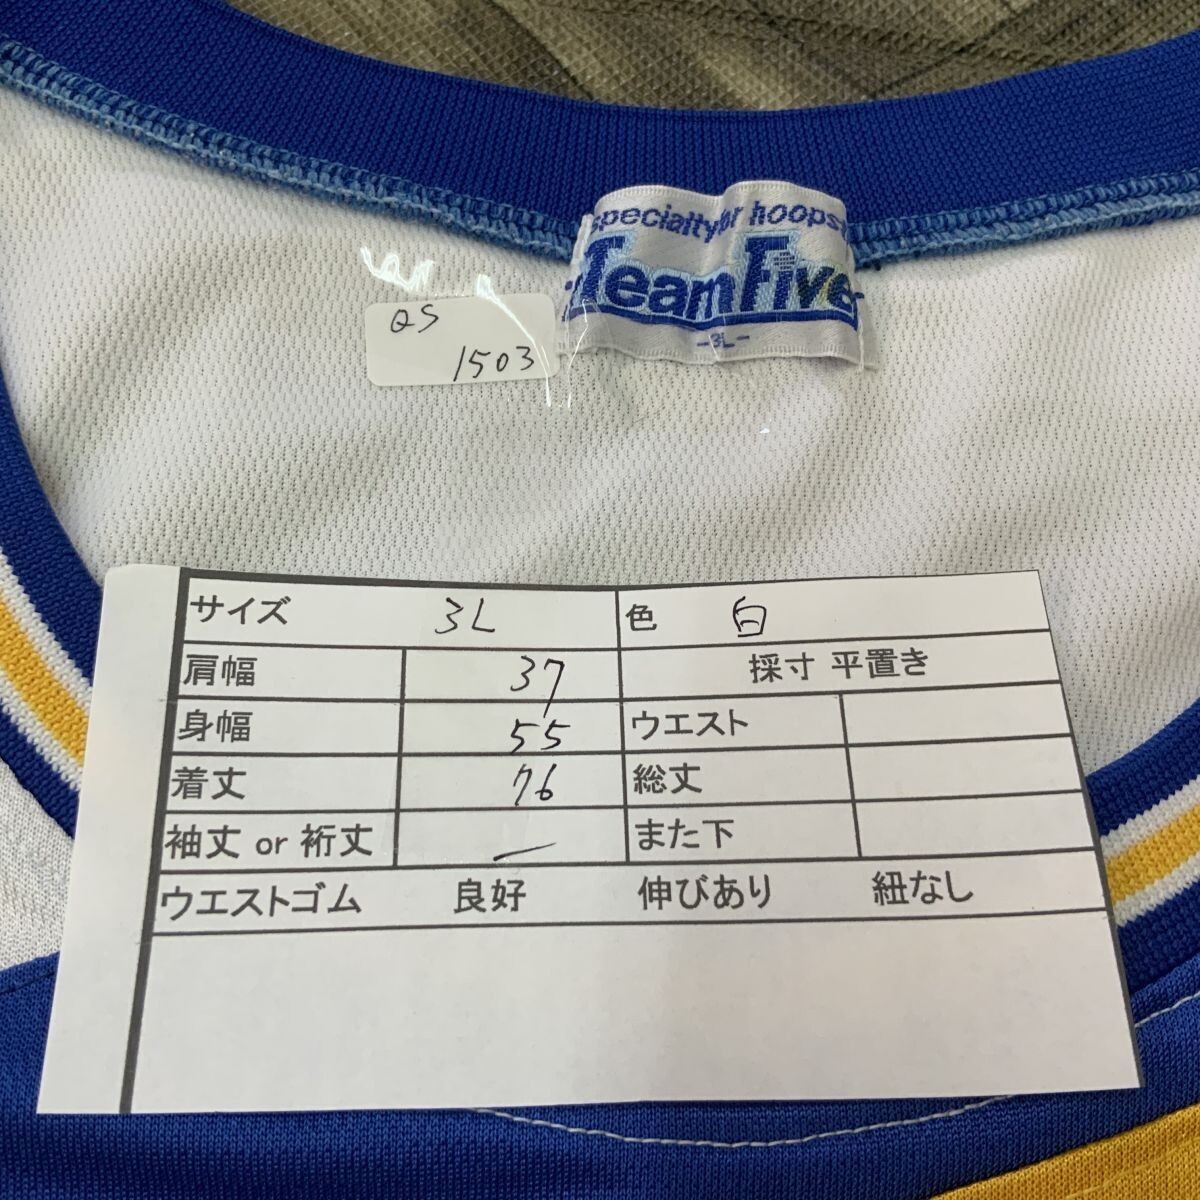 specialty for hoops
TeamFive
-3L-
QS
1503
サイズ 3L 色 白
肩幅 37 採寸 平置き
身幅 55 ウエスト
着丈 76 総丈
袖丈 or 裄丈 — また下
ウエストゴム 良好 伸びあり 紐なし